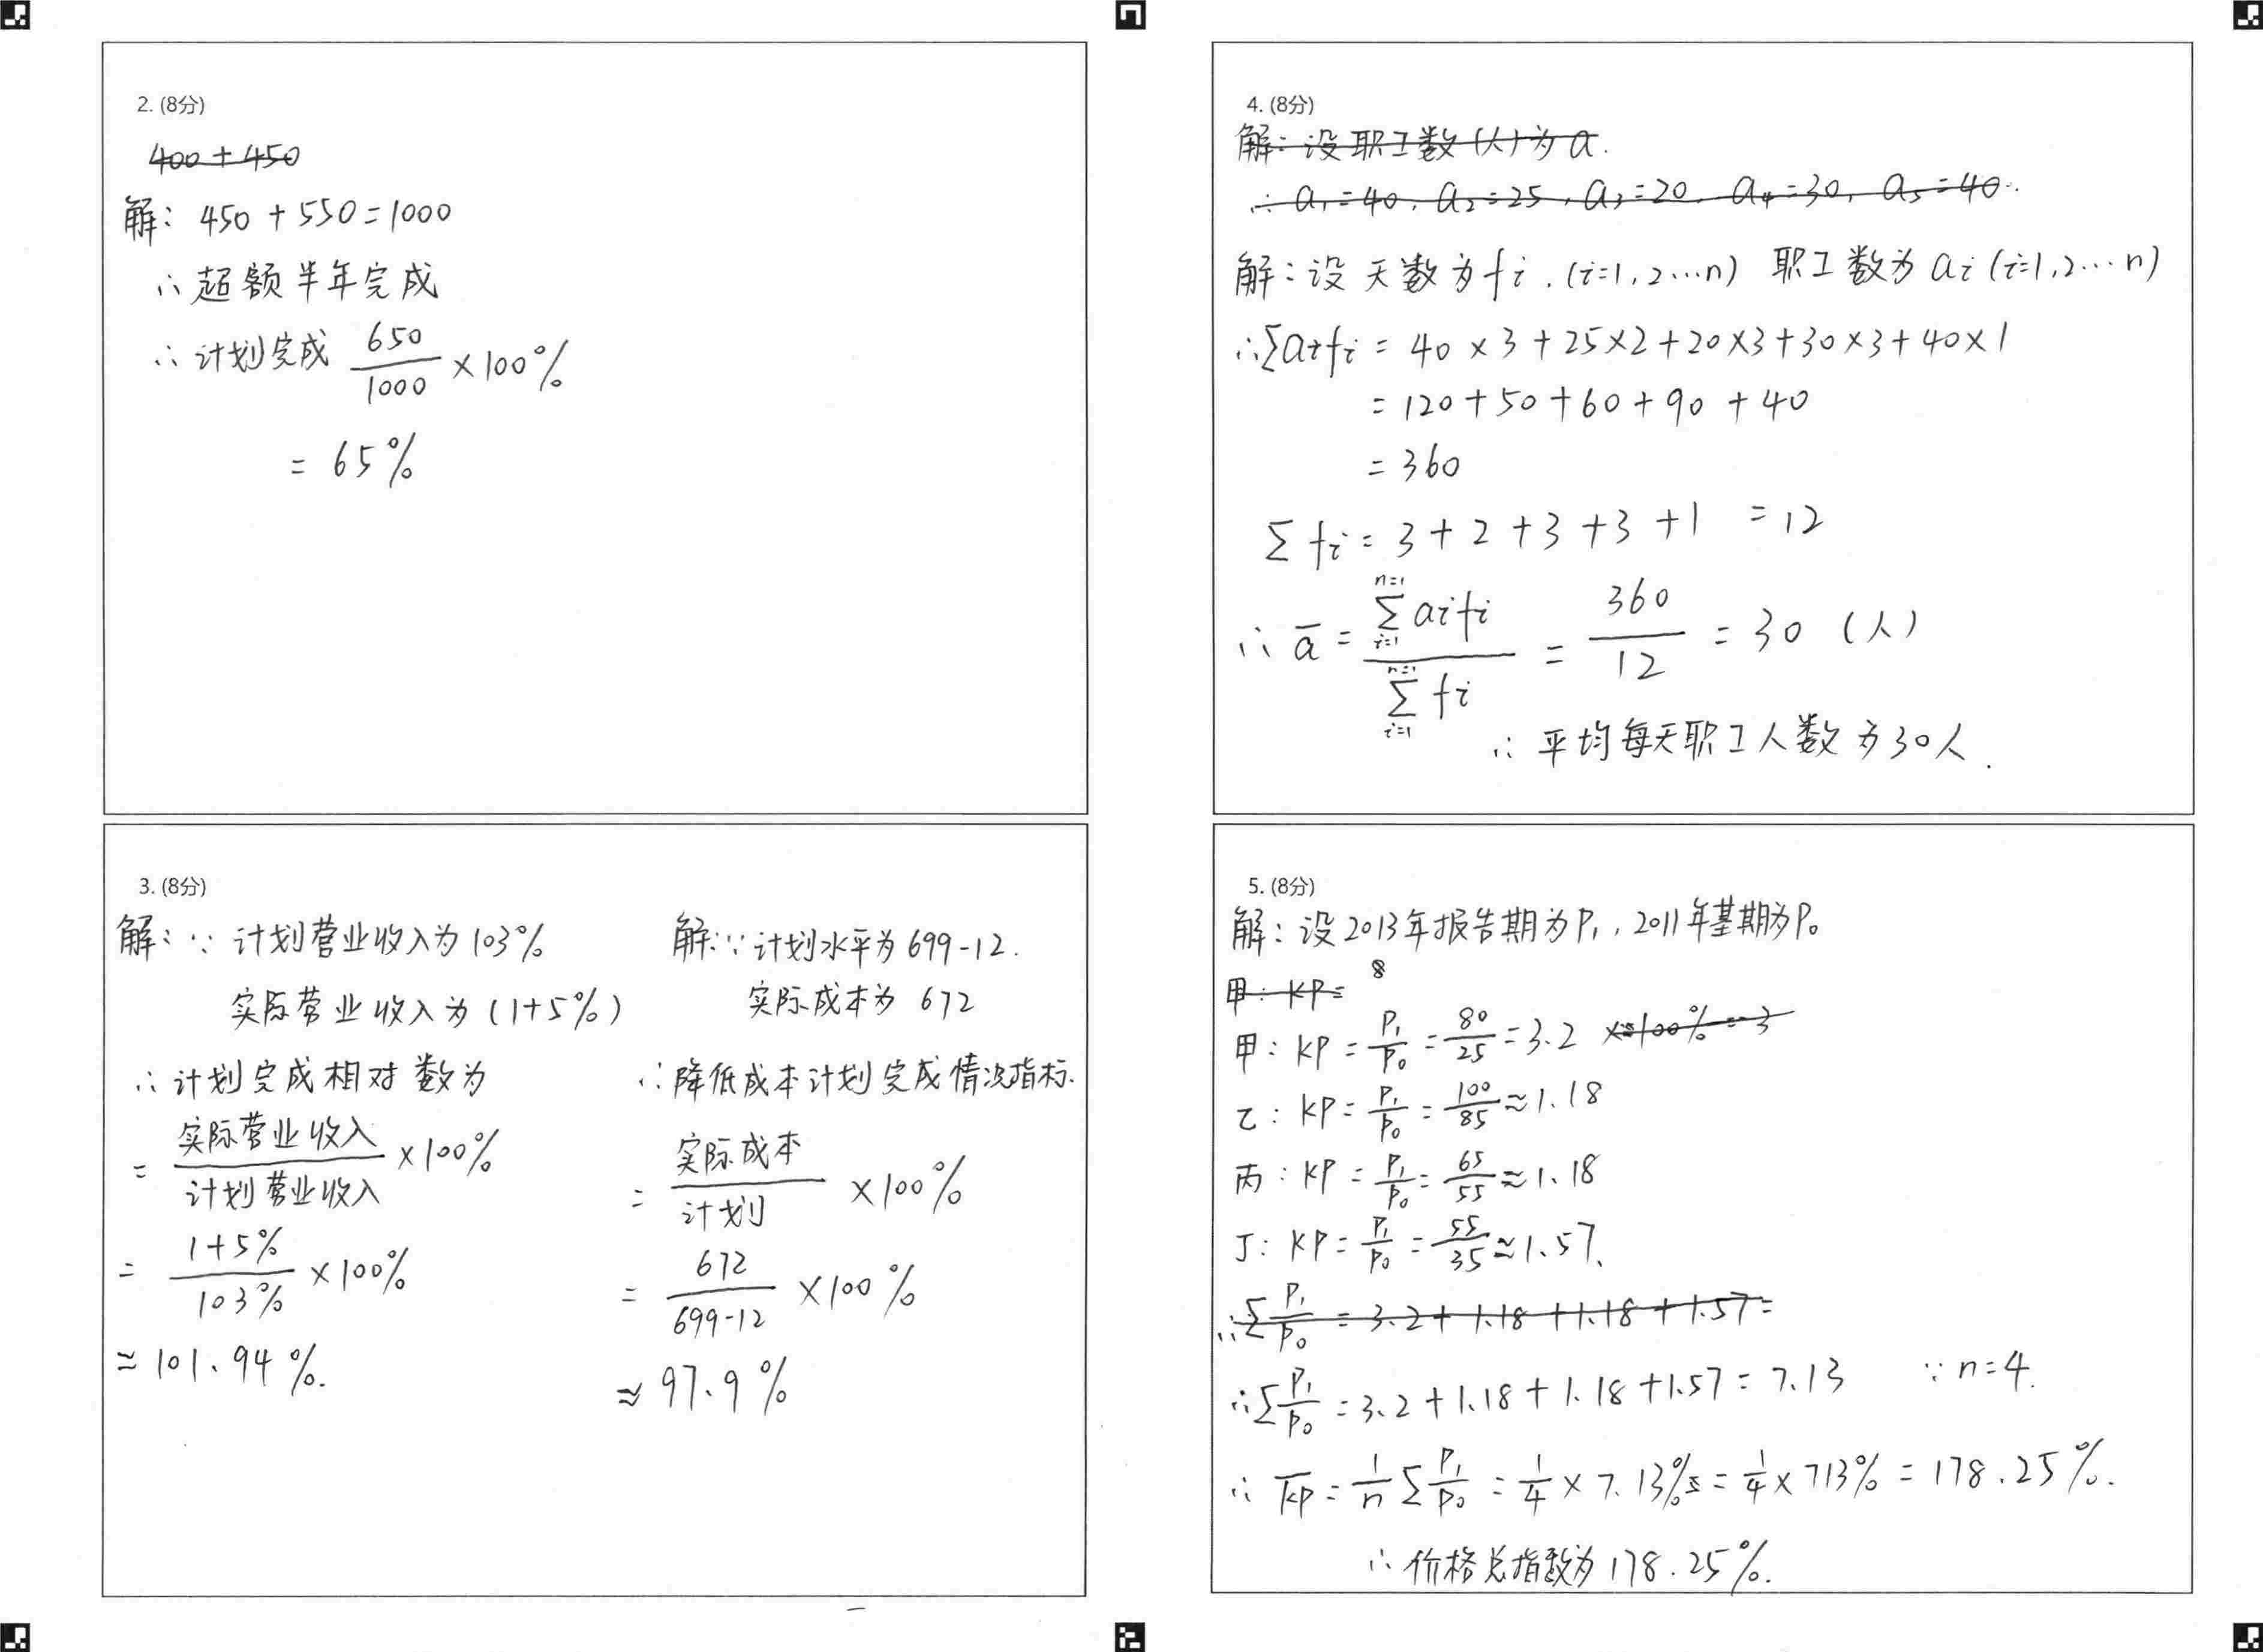 2. (8分)
400 + 450
解: 450 + 550 = 1000
∴ 超额半年完成
∴ 计划完成 650/1000 × 100%
= 65%
3. (8分)
解: ∵ 计划营业收入为 103%
实际营业收入为 (1+5%)
∴ 计划完成相对数为
= 实际营业收入/计划营业收入 × 100%
= 1+5%/103% × 100%
≈ 101.94%.
解: ∵ 计划水平为 699-12.
实际成本为 672
∴ 降低成本计划完成情况指标.
= 实际成本/计划 × 100%
= 672/699-12 × 100%
≈ 97.9%
4. (8分)
解: 设职工数(人)为a.
∴ a₁=40, a₂=25, a₃=20, a₄=30, a₅=40.
解: 设天数为fi. (i=1,2…n) 职工数为ai (i=1,2…n)
∴ Σaifi = 40×3+25×2+20×3+30×3+40×1
= 120+50+60+90+40
= 360
Σfi = 3+2+3+3+1 = 12
∴ a̅ = Σ(i=1, n=1) aifi / Σ(i=1, n=1) fi = 360/12 = 30 (人)
∴ 平均每天职工人数为30人.
5. (8分)
解: 设2013年报告期为P₁, 2011年基期为P₀
甲: KP= 8
甲: KP = P₁/P₀ = 80/25 = 3.2 ×100% = 3
乙: KP = P₁/P₀ = 100/85 ≈ 1.18
丙: KP = P₁/P₀ = 65/55 ≈ 1.18
丁: KP = P₁/P₀ = 55/35 ≈ 1.57.
∴ Σ P₁/P₀ = 3.2+1.18+1.18+1.57=
∴ Σ P₁/P₀ = 3.2+1.18+1.18+1.57 = 7.13 ∵ n=4.
∴ K̅P̅ = 1/n Σ P₁/P₀ = 1/4 × 7.13% = 1/4 × 713% = 178.25%.
∴ 价格总指数为178.25%.